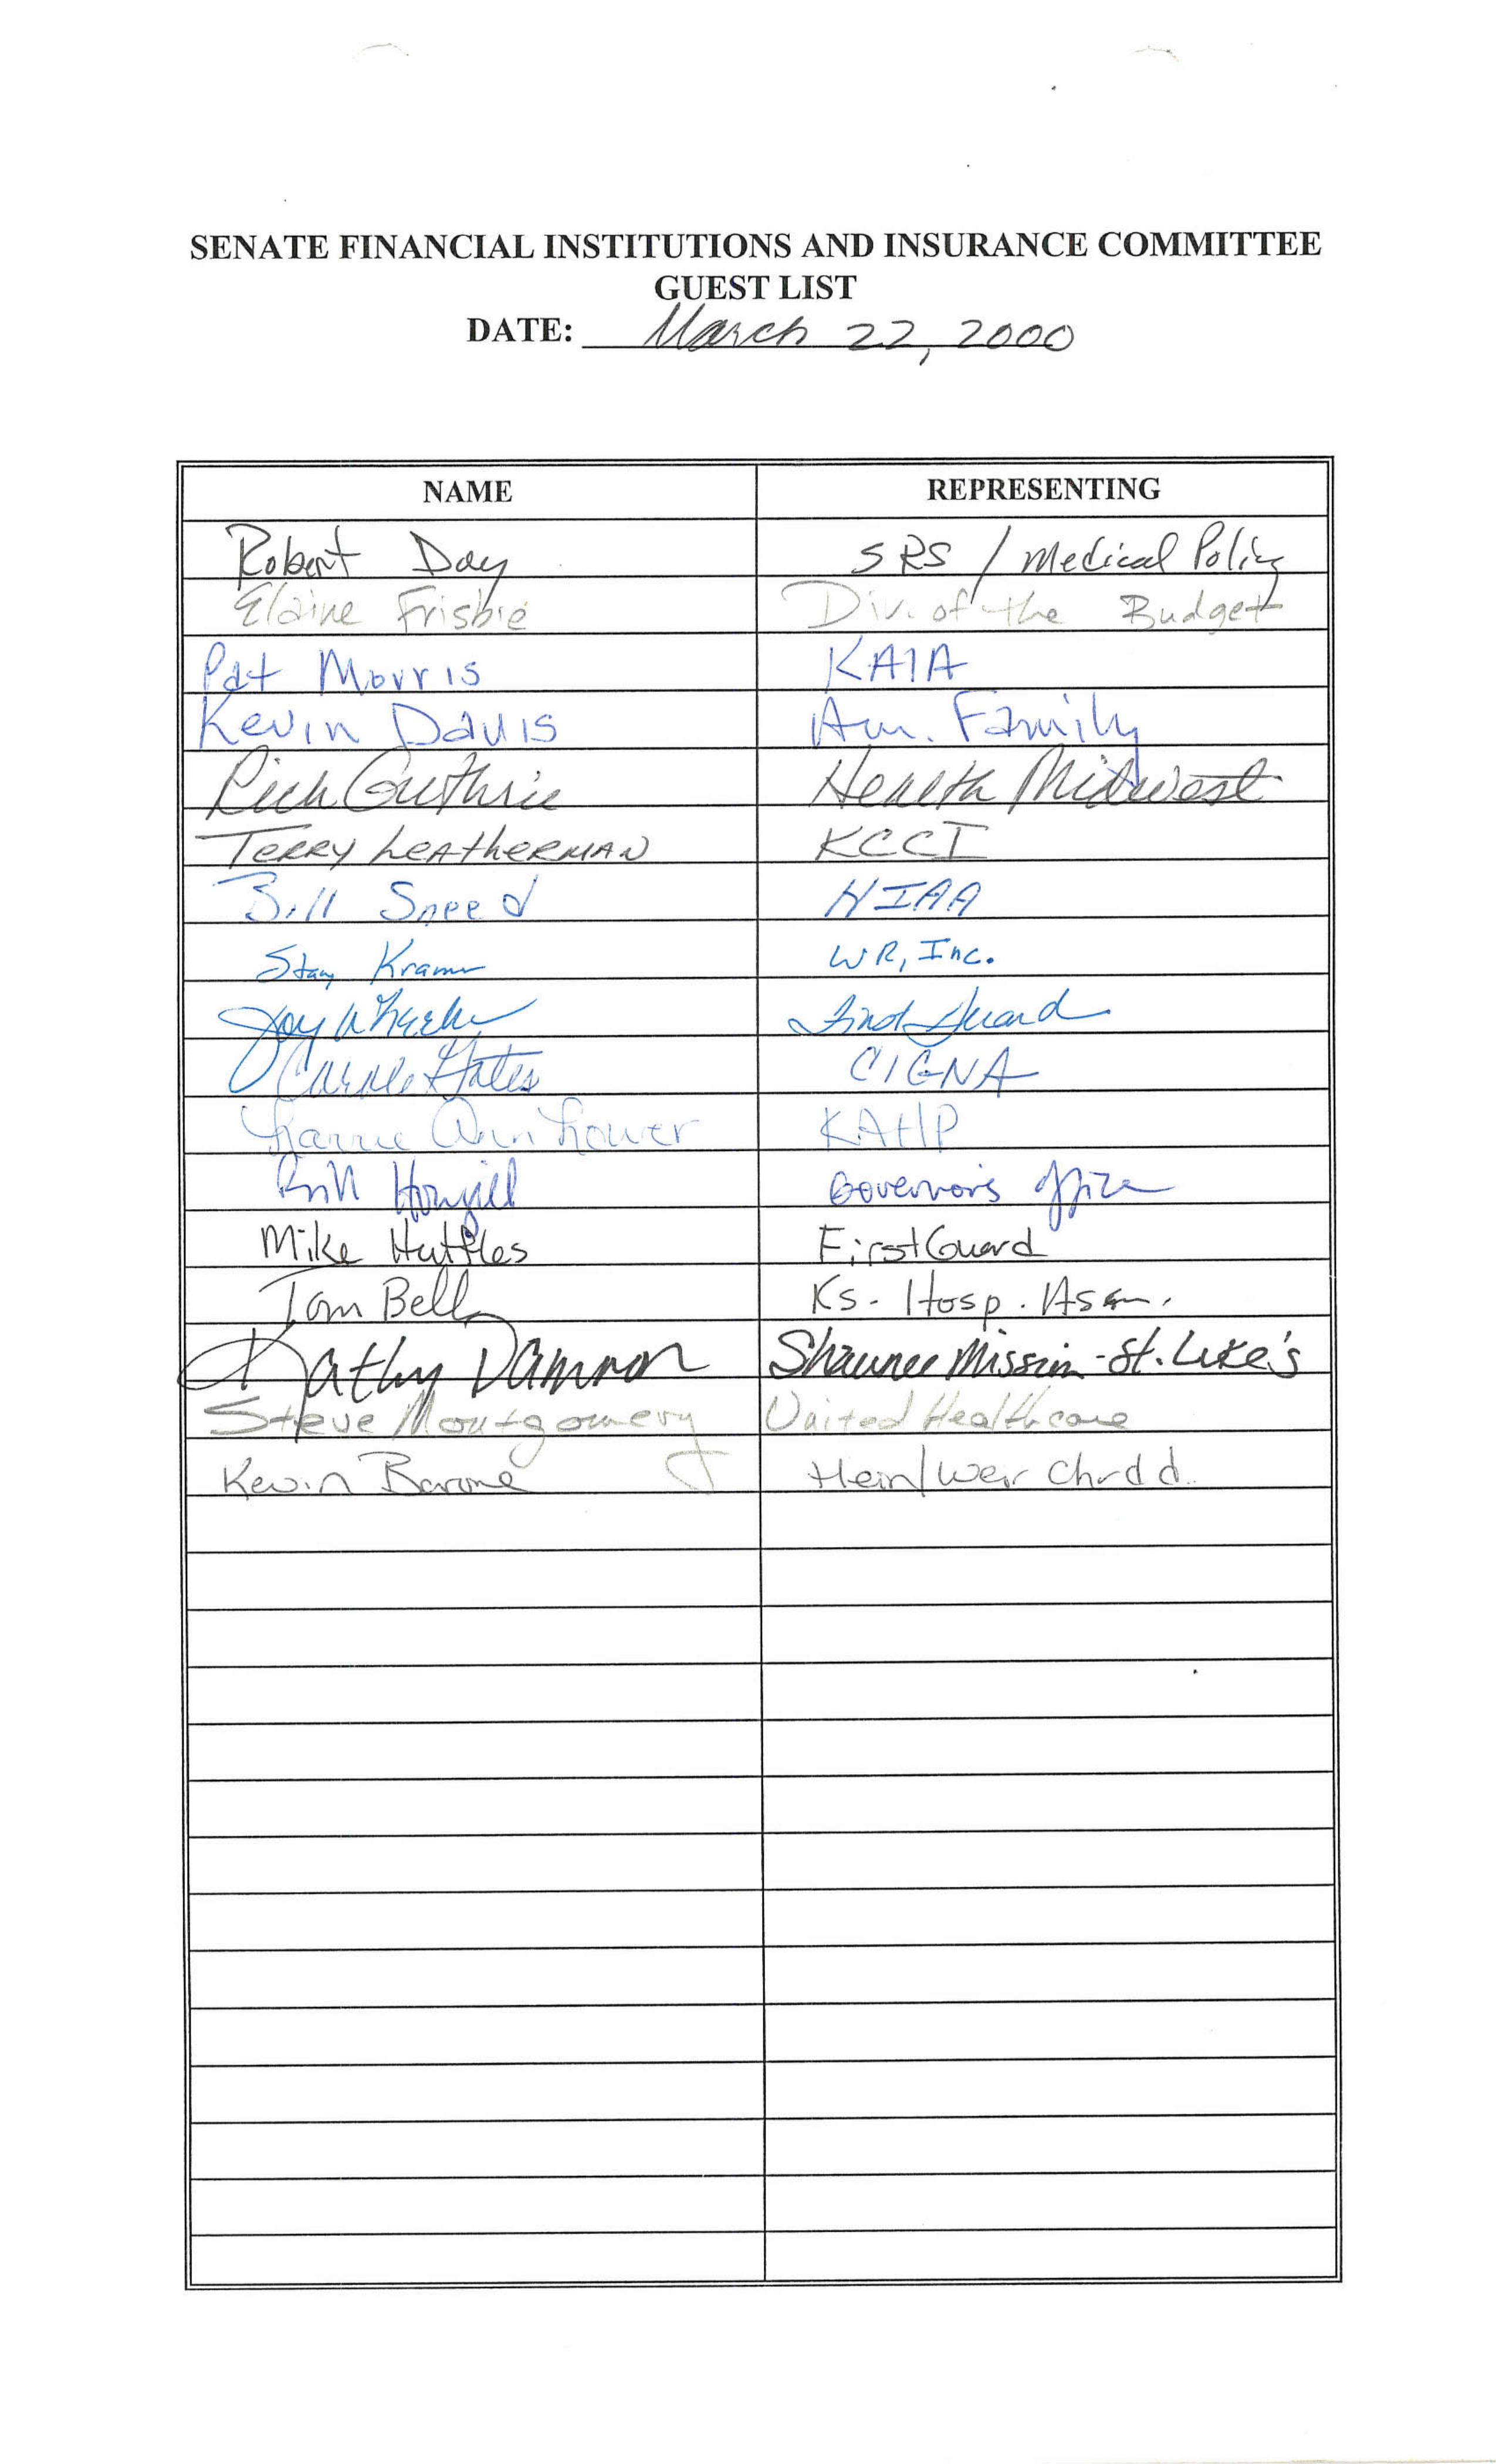 SENATE FINANCIAL INSTITUTIONS AND INSURANCE COMMITTEE
GUEST LIST
DATE: March 22, 2000
NAME REPRESENTING
Robert Day SRS / Medical Policy
Elaine Frisbie Div. of the Budget
Pat Morris KAIA
Kevin Davis Am. Family
Rich Guthrie Health Midwest
Terry Leatherman KCCI
Bill Sneed HIAA
Kramer WR, Inc.
Joy Wheeler First Guard
Carole Gates CIGNA
Larrie Ann Lower KAHP
Governor's Office
Mike Huttles FirstGuard
Tom Bell Ks. Hosp. Assn.
Kathy Damron Shawnee Mission - St. Luke's
Steve Montgomery United Healthcare
Kevin Barone Hein/Weir Chrtd.